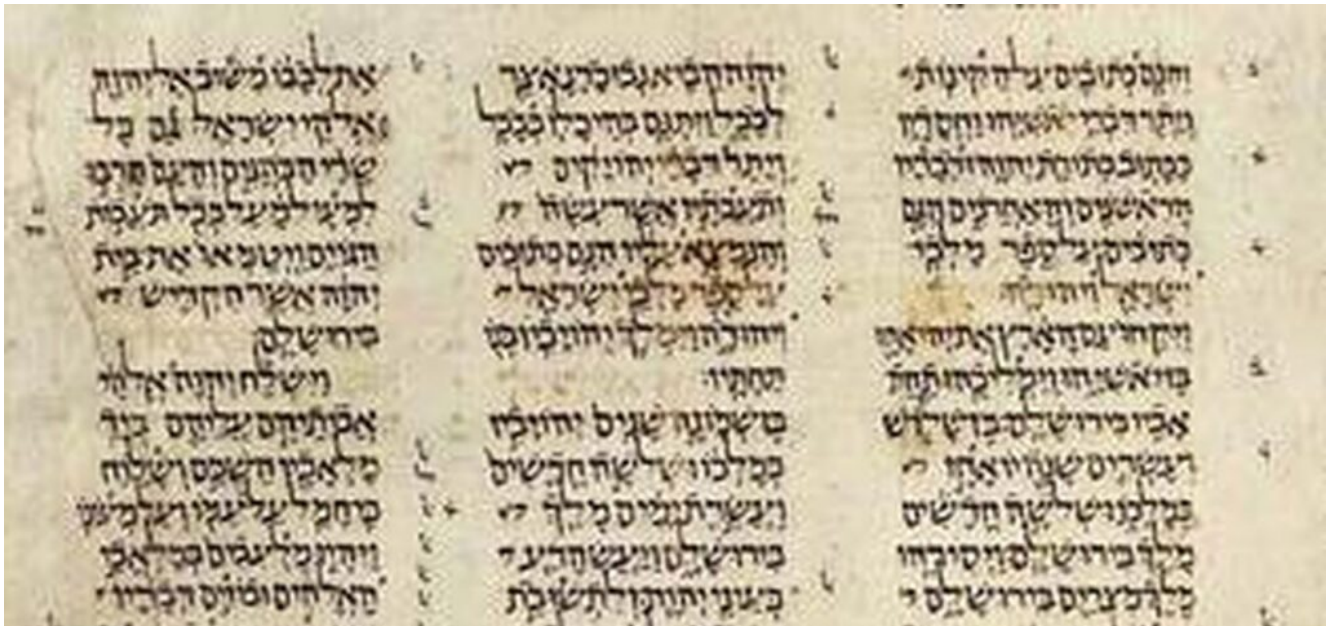 והנם כתובים על הקינות
ויתר דברי יאשיהו וחסדיו
ככתוב בתורת יהוה ודבריו
הראשנים והאחרנים הנם
כתובים על ספר מלכי
ישראל ויהודה
ויקח עם הארץ את יהואחז
בן יאשיהו וימליכהו תחת
אביו בירושלם בן שלוש
ועשרים שנה יואחז
במלכו ושלשה חדשים
מלך בירושלם ויסירהו
מלך מצרים בירושלם
יהוה הביא נבוכדנאצר
לבבל ויתנם בהיכלו בבבל
ויתר דברי יהויקים
ותעבתיו אשר עשה
והנמצא עליו הנם כתובים
על ספר מלכי ישראל
ויהודה וימלך יהויכין בנו
תחתיו
בן שמונה שנים יהויכין
במלכו ושלשה חדשים
ועשרת ימים מלך
בירושלם ויעש הרע
בעיני יהוה ולתשובת
את לבבו משוב אל יהוה
אלהי ישראל גם כל
שרי הכהנים והעם הרבו
למעול מעל ככל תעבות
הגוים ויטמאו את בית
יהוה אשר הקדיש
בירושלם
וישלח יהוה אלהי
אבותיהם עליהם ביד
מלאכיו השכם ושלוח
כי חמל על עמו ועל מעונו
ויהיו מלעבים במלאכי
האלהים ובוזים דבריו